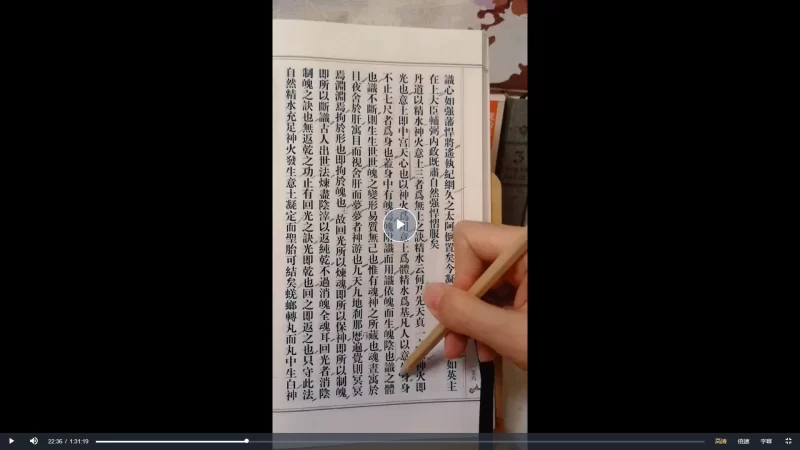 識心如强藩悍將遙執紀綱久之太阿倒置矣今凝如英主
在上大臣輔弼內政既肅自然强悍慴服矣
丹道以精水神火意土三者爲無上之訣精水云何乃先天真一神火即
光也意土即中宮天心也以神火爲意土爲體精水爲基凡人以意身
不止七尺者爲身也蓋身中有魄魄附識而用識依魄而生魄陰也識之體
也識不斷則生生世世魄之變形易質無已也惟有魂神之所藏也魂晝寓於
目夜舍於肝寓目而視舍肝而夢夢者神游也九天九地刹那歷遍覺則冥冥
焉淵淵焉拘於形也即拘於魄也故回光所以煉魂即所以保神即所以制魄
即所以斷識古人出世法煉盡陰滓以返純乾不過消魄全魂耳回光者消陰
制魄之訣也無返乾之功止有回光之訣光即乾也回之即返之也只守此法
自然精水充足神火發生意土凝定而聖胎可結矣蜣螂轉丸而丸中生白神
22:36 / 1:31:19
高清 倍速 字幕